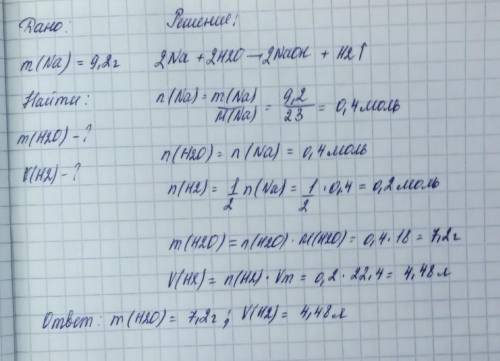 Дано:
m(Na) = 9,2г
Найти:
m(H2O) - ?
V(H2) - ?
Решение:
2Na + 2H2O → 2NaOH + H2↑
n(Na) = m(Na)/M(Na) = 9,2/23 = 0,4 моль
n(H2O) = n(Na) = 0,4 моль
n(H2) = 1/2 n(Na) = 1/2 · 0,4 = 0,2 моль
m(H2O) = n(H2O) · M(H2O) = 0,4 · 18 = 7,2г
V(H2) = n(H2) · Vm = 0,2 · 22,4 = 4,48л
Ответ: m(H2O) = 7,2г; V(H2) = 4,48л